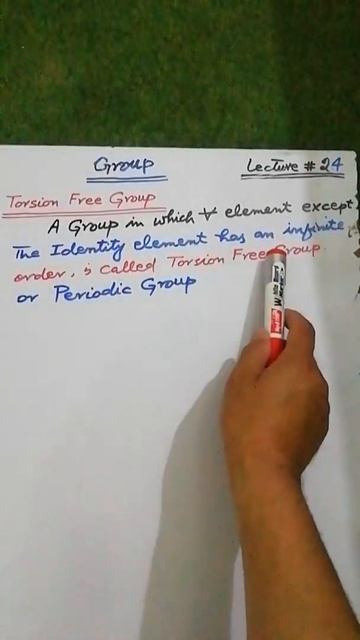 Group
Lecture # 24
Torsion Free Group
A Group in which ∀ element except
The Identity element has an infinite
order, is called Torsion Free Group.
or Periodic Group